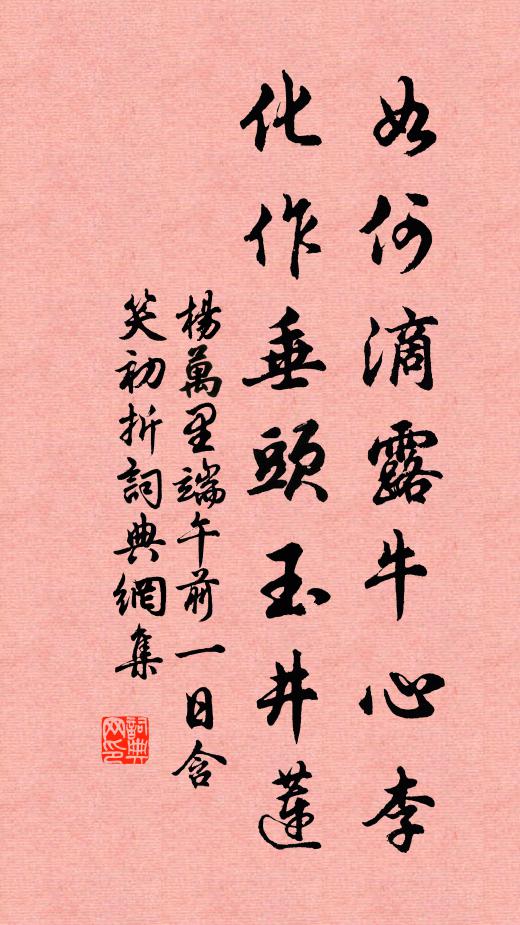 如何滴露牛心李
化作垂頭玉井蓮
楊萬里端午前一日含
笑初折詞典網集
詞典
网印